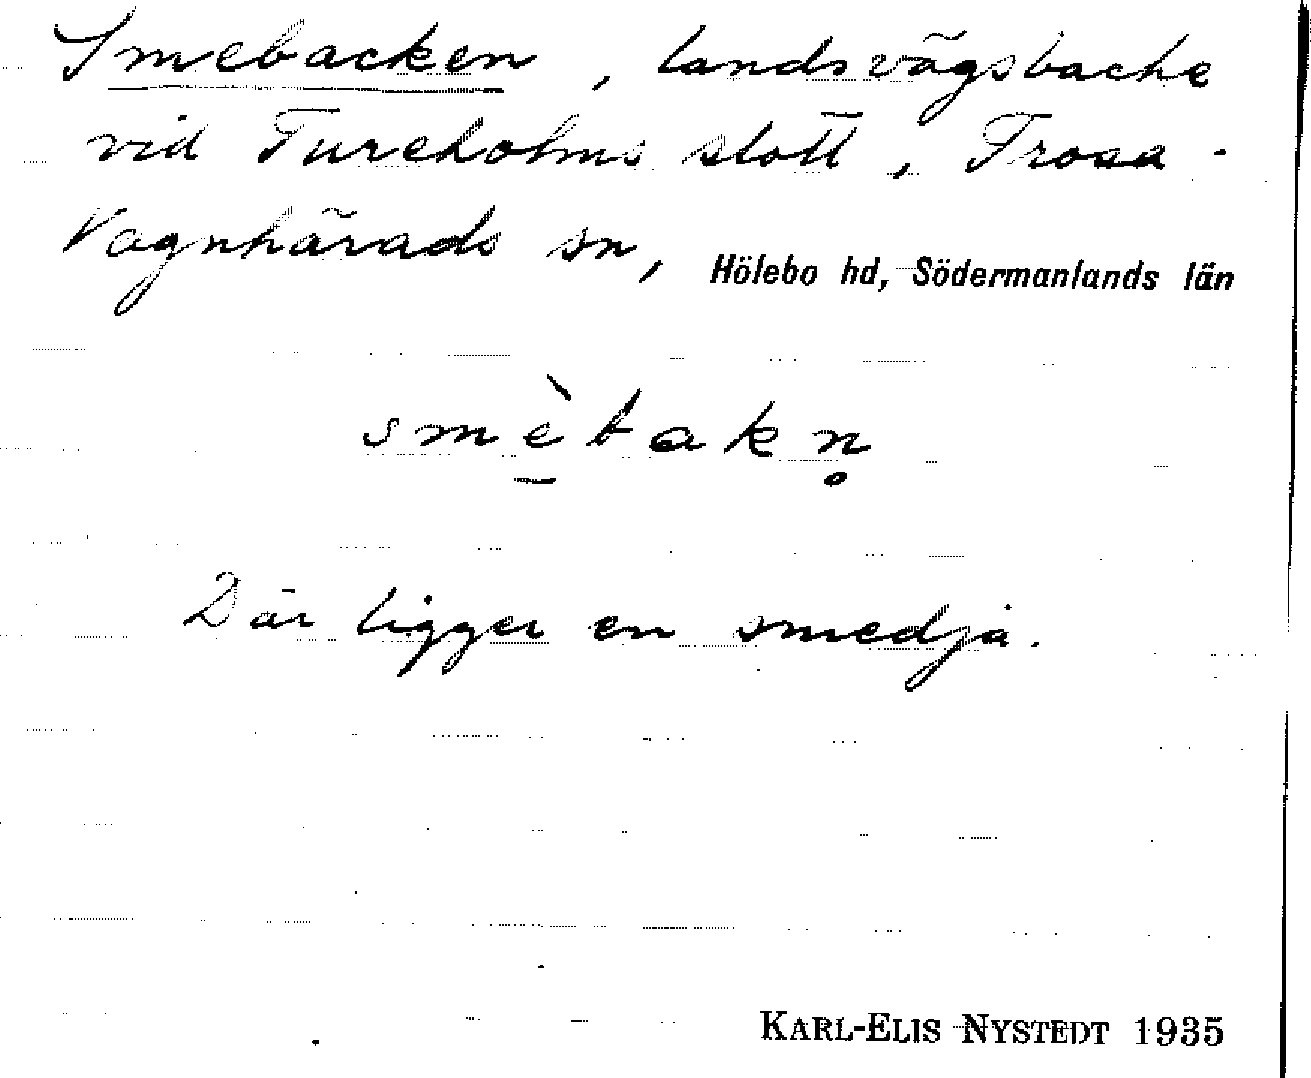 Smebacken, landsvägsbacke
vid Tureholms slott, Trosa-
Vagnhärads sn, Hölebo hd, Södermanlands län
smè̱bakn̥
Där ligger en smedja.
KARL-ELIS NYSTEDT 1935